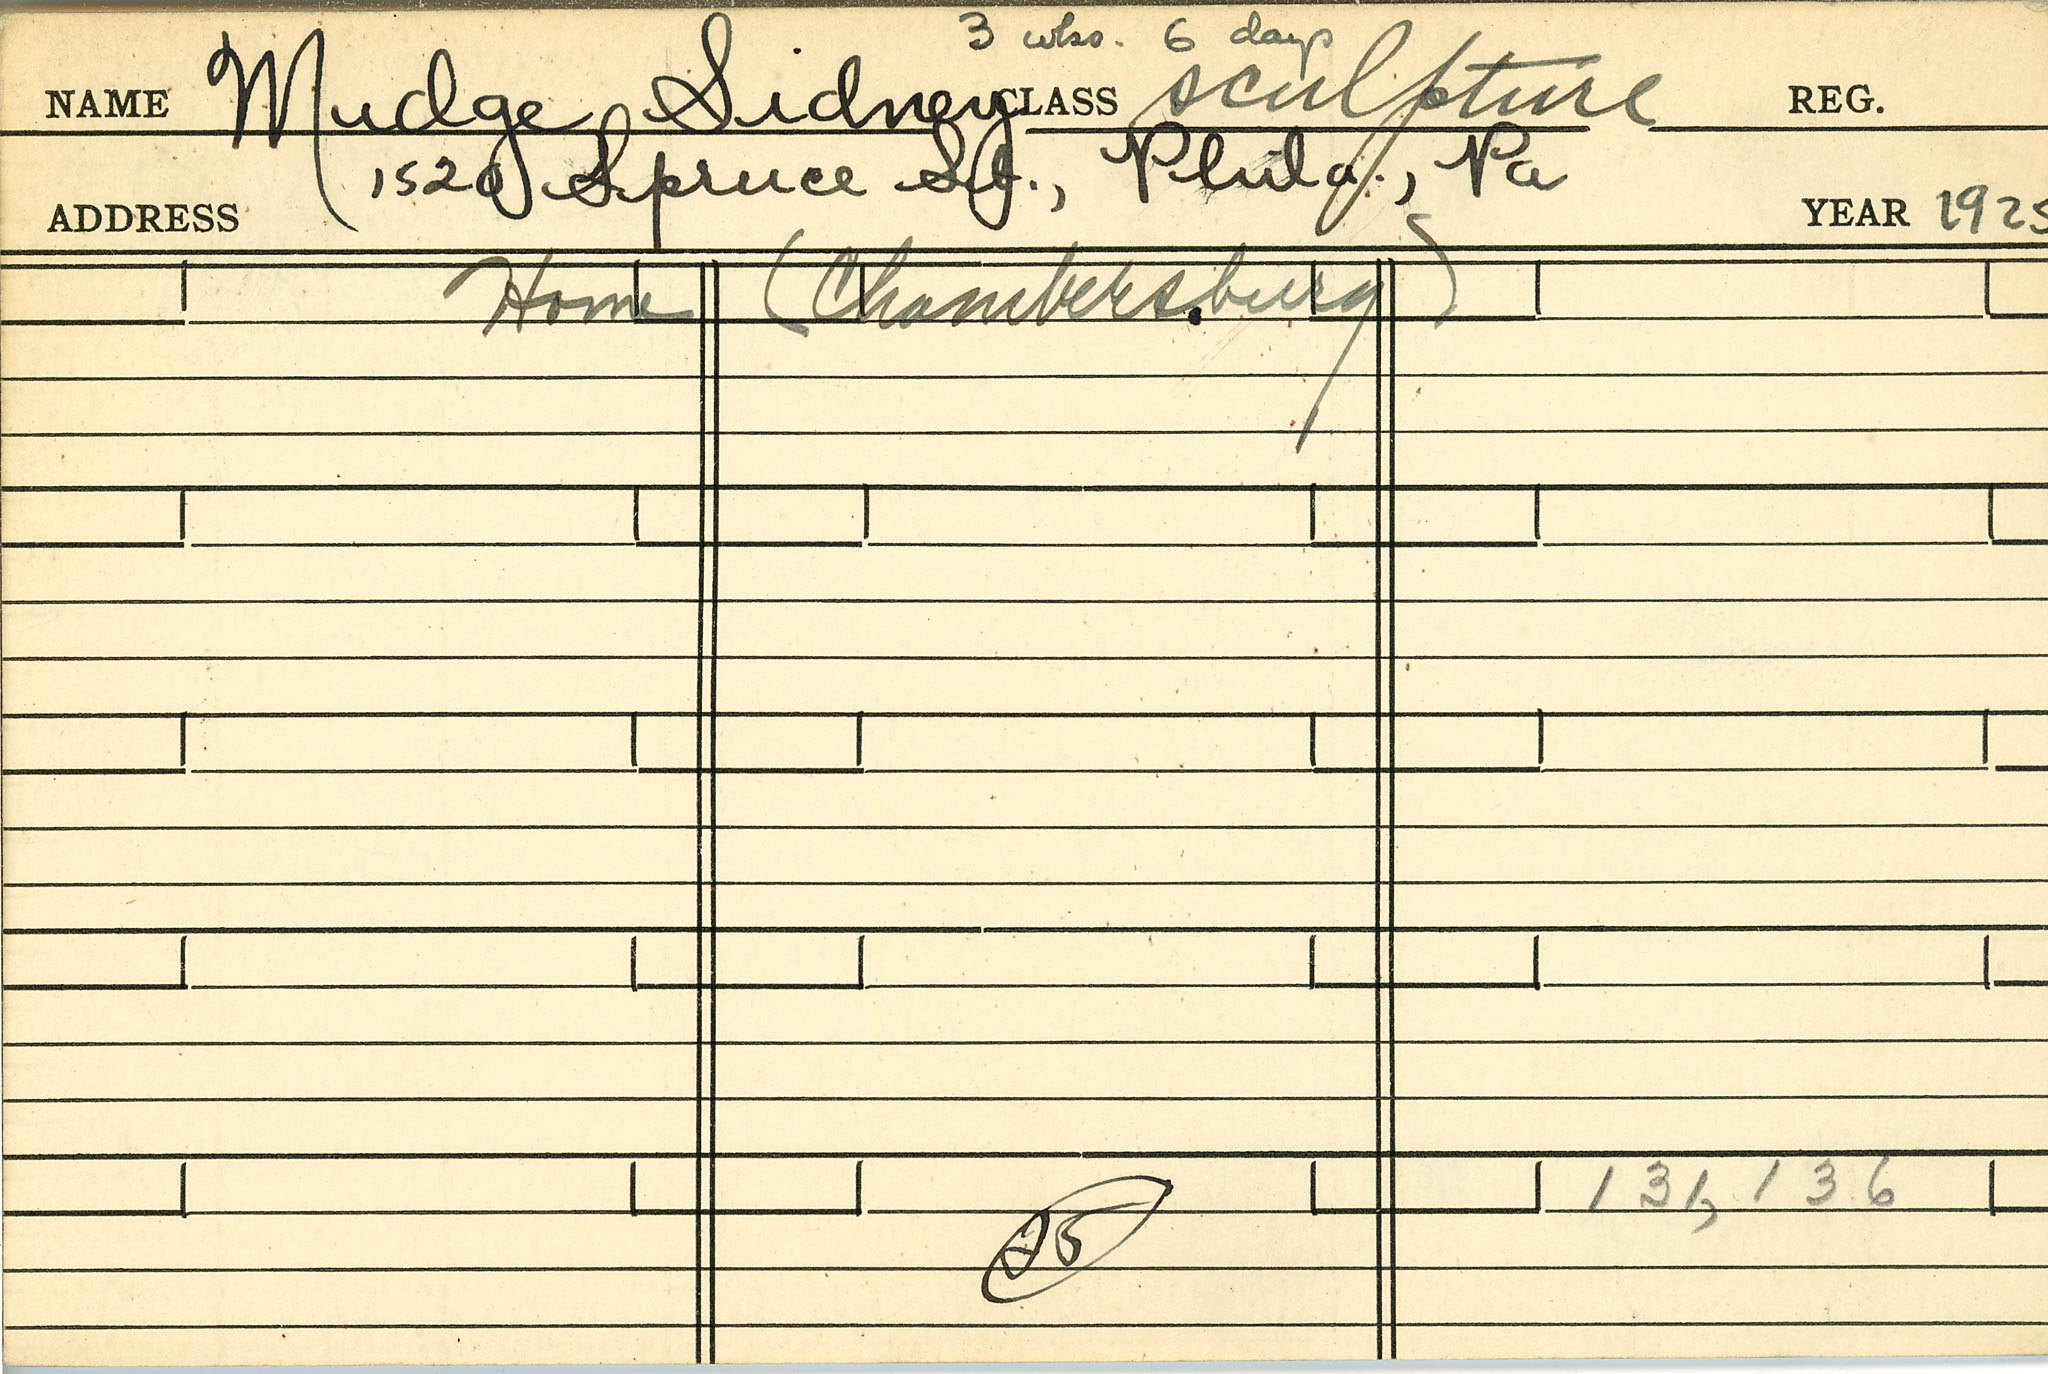 3 wks. 6 days
NAME Mudge Sidney CLASS sculpture REG.
1520 Spruce St., Phila., Pa
ADDRESS YEAR 1925
Home (Chambersburg)
131, 136
25